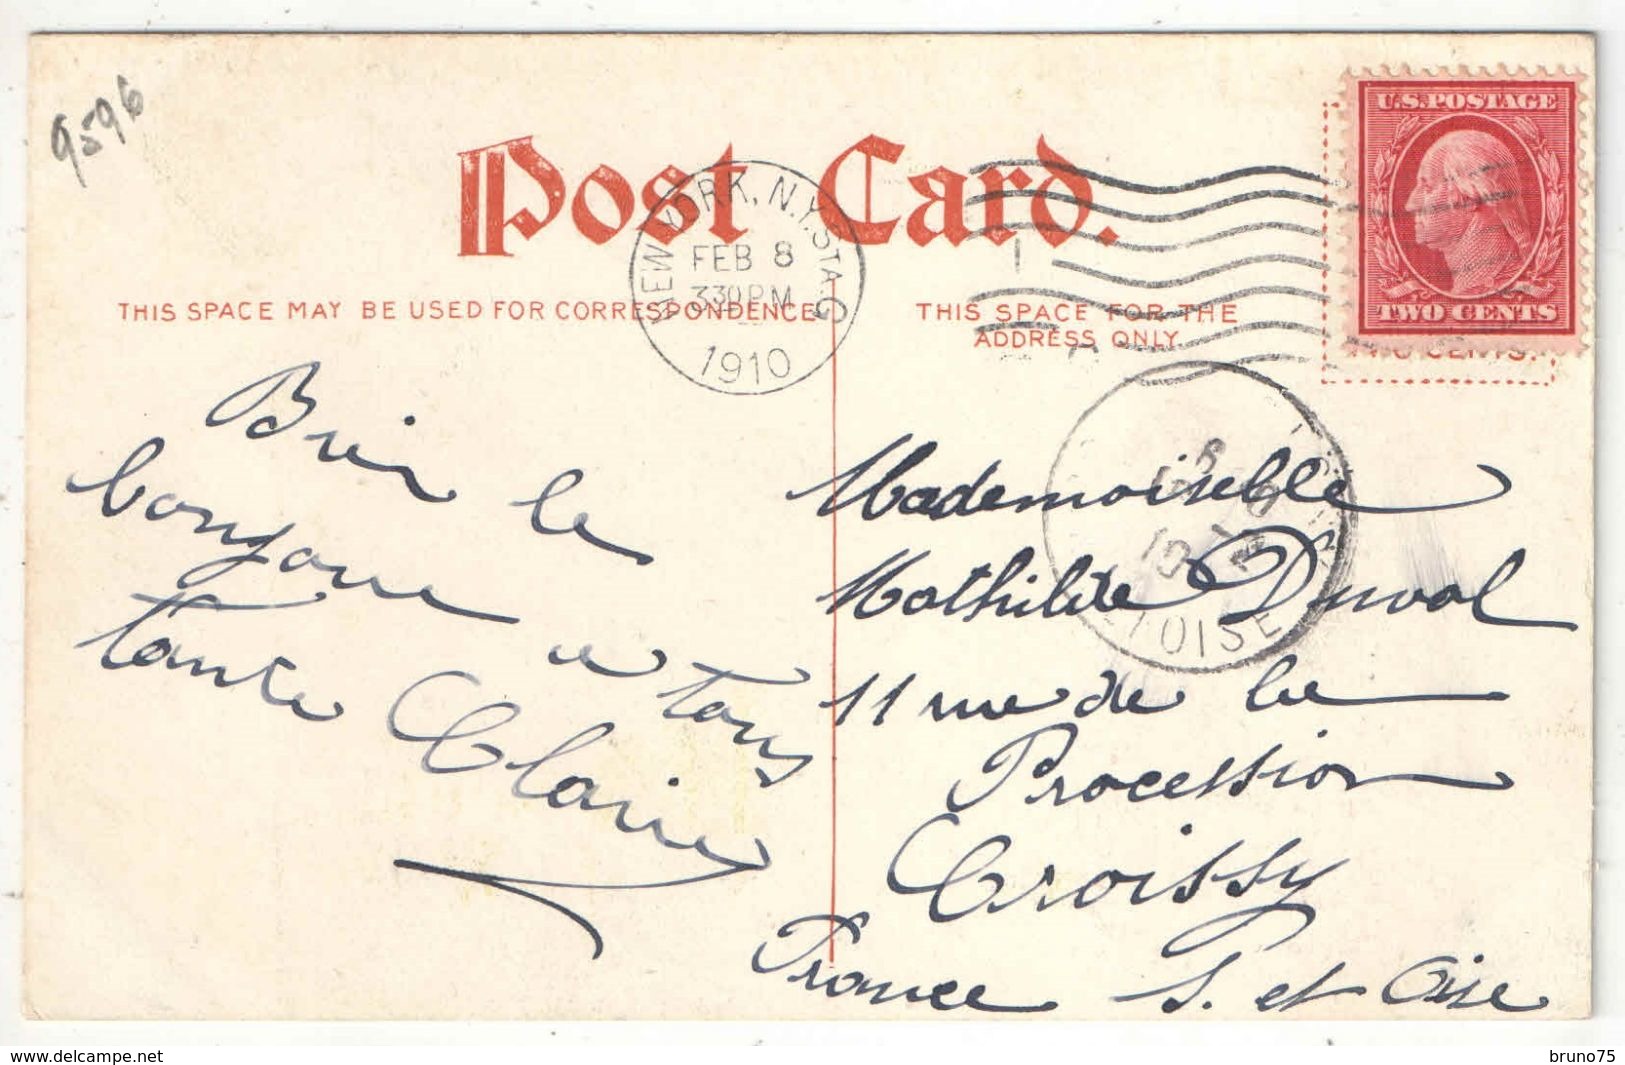 9596
Post Card.
NEW YORK, N.Y. STA. G
FEB 8
330 PM
1910
U.S. POSTAGE
TWO CENTS
THIS SPACE MAY BE USED FOR CORRESPONDENCE
THIS SPACE FOR THE
ADDRESS ONLY
TWO CENTS.
Bien le
bonjour a tous
tante Claire
Mademoiselle
Mathilde Duval
11 rue de la
Procession
Croissy
France S. et Oise
OISE
delcampe.net
bruno75